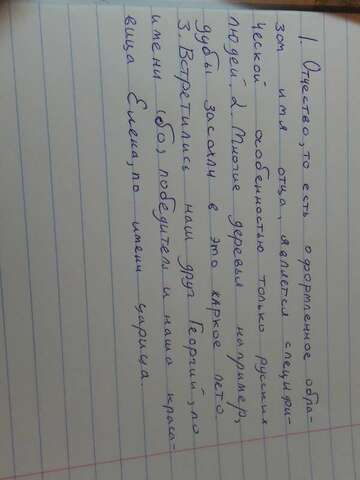 1. Отчество, то есть оформленное обра-
зом имя отца, является специфи-
ческой особенностью только русских
людей. 2. Многие деревья например,
дубы засохли в это жаркое лето.
3. Встретились наш друг Георгий, по
имени (бо) победитель и наша краса-
вица Елена, по имени царица.